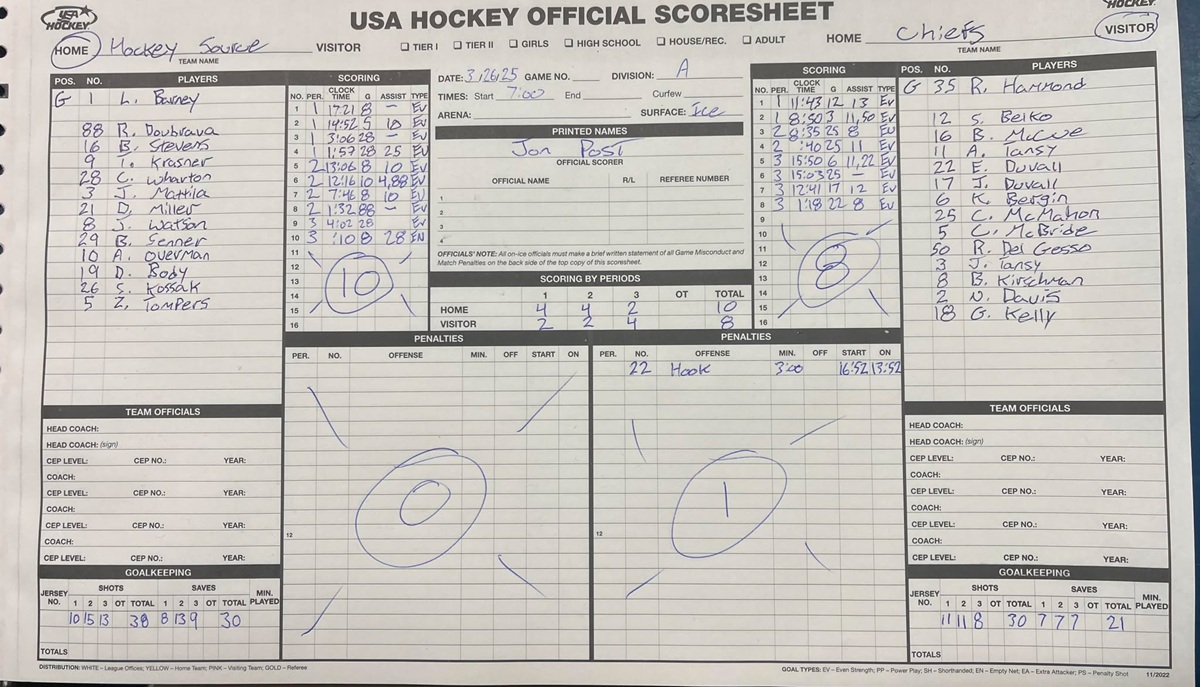 USA HOCKEY
USA HOCKEY OFFICIAL SCORESHEET
HOCKEY
HOME Hockey Source VISITOR ☐ TIER I ☐ TIER II ☐ GIRLS ☐ HIGH SCHOOL ☐ HOUSE/REC. ☐ ADULT HOME Chiefs VISITOR
TEAM NAME TEAM NAME
POS. NO. PLAYERS
G 1 L. Barney
88 R. Doubrava
16 B. Stevens
9 T. Krasner
28 C. Wharton
3 J. Mattila
21 D. Miller
8 J. Watson
29 B. Senner
10 A. Overman
19 D. Body
26 S. Kossak
5 Z. Tompers
SCORING
NO. PER. CLOCK TIME G ASSIST TYPE
1 1 17:21 8 - EV
2 1 14:52 5 10 EV
3 1 3:06 28 - EV
4 1 1:57 28 25 EV
5 2 13:06 8 10 EV
6 2 12:16 10 4,88 EV
7 2 7:46 8 10 EV
8 2 1:32 88 - EV
9 3 4:02 28 EV
10 3 :10 8 28 EN
11
12
13
14
15
16
10
DATE: 3/26/25 GAME NO. DIVISION: A
TIMES: Start 7:00 End Curfew
ARENA: SURFACE: Ice
PRINTED NAMES
Jon Post
OFFICIAL SCORER
OFFICIAL NAME R/L REFEREE NUMBER
1
2
3
4
OFFICIALS' NOTE: All on-ice officials must make a brief written statement of all Game Misconduct and
Match Penalties on the back side of the top copy of this scoresheet.
SCORING BY PERIODS
1 2 3 OT TOTAL
HOME 4 4 2 10
VISITOR 2 2 4 8
SCORING
NO. PER. CLOCK TIME G ASSIST TYPE
1 1 11:43 12 13 EV
2 1 8:50 3 11,50 EV
3 2 8:35 25 8 EV
4 2 :40 25 11 EV
5 3 15:50 6 11,22 EV
6 3 15:03 25 - EV
7 3 12:41 17 12 EV
8 3 1:18 22 8 EV
9
10
11
12
13
14
15
16
8
POS. NO. PLAYERS
G 35 R. Hammond
12 S. Belko
16 B. McCue
11 A. Tansy
22 E. Duvall
17 J. Duvall
6 K. Bergin
25 C. McMahon
5 C. McBride
50 R. Del Gosso
3 J. Tansy
8 B. Kirschman
2 N. Davis
18 G. Kelly
PENALTIES
PER. NO. OFFENSE MIN. OFF START ON
12
0
PENALTIES
PER. NO. OFFENSE MIN. OFF START ON
22 Hook 3:00 16:52 13:52
12
1
TEAM OFFICIALS
HEAD COACH:
HEAD COACH: (sign)
CEP LEVEL: CEP NO.: YEAR:
COACH:
CEP LEVEL: CEP NO.: YEAR:
COACH:
CEP LEVEL: CEP NO.: YEAR:
COACH:
CEP LEVEL: CEP NO.: YEAR:
GOALKEEPING
JERSEY NO. SHOTS SAVES MIN. PLAYED
1 2 3 OT TOTAL 1 2 3 OT TOTAL
10 15 13 38 8 13 9 30
TOTALS
TEAM OFFICIALS
HEAD COACH:
HEAD COACH: (sign)
CEP LEVEL: CEP NO.: YEAR:
COACH:
CEP LEVEL: CEP NO.: YEAR:
COACH:
CEP LEVEL: CEP NO.: YEAR:
COACH:
CEP LEVEL: CEP NO.: YEAR:
GOALKEEPING
JERSEY NO. SHOTS SAVES MIN. PLAYED
1 2 3 OT TOTAL 1 2 3 OT TOTAL
11 11 8 30 7 7 7 21
TOTALS
DISTRIBUTION: WHITE – League Offices; YELLOW – Home Team; PINK – Visiting Team; GOLD – Referee
GOAL TYPES: EV – Even Strength; PP – Power Play; SH – Shorthanded; EN – Empty Net; EA – Extra Attacker; PS – Penalty Shot 11/2022